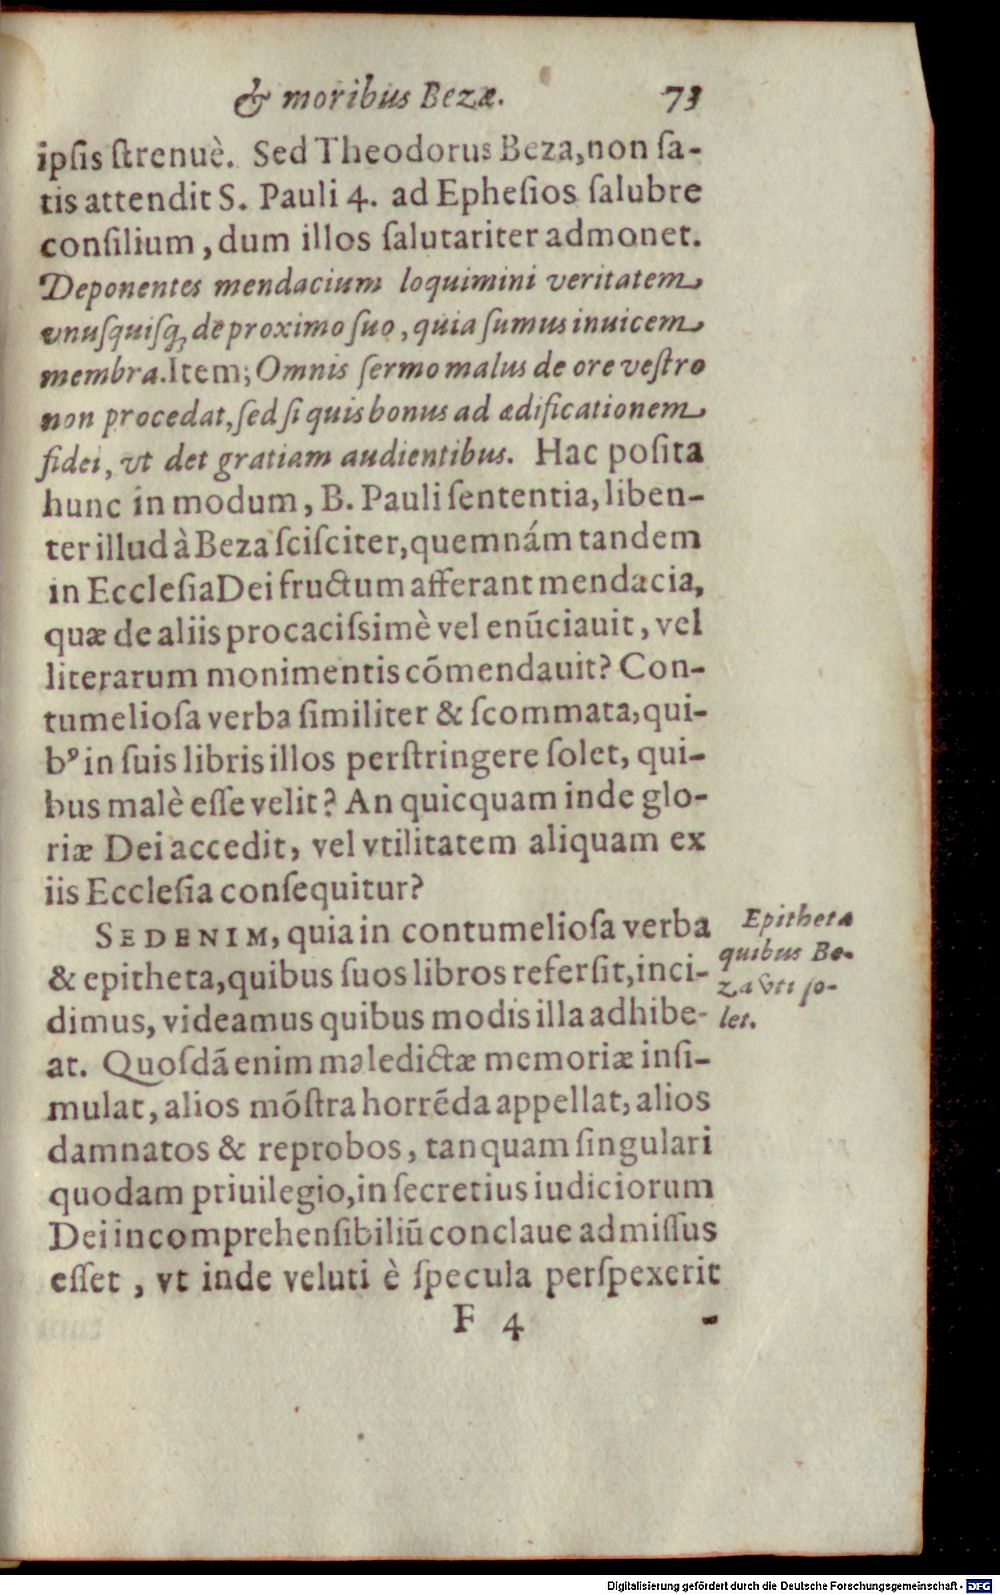 & moribus Bezæ. 73
ipsis ſtrenuè. Sed Theodorus Beza, non ſa-
tis attendit S. Pauli 4. ad Epheſios ſalubre
conſilium, dum illos ſalutariter admonet.
Deponentes mendacium loquimini veritatem
vnuſquiſq; de proximo ſuo, quia ſumus inuicem
membra. Item; Omnis ſermo malus de ore veſtro
non procedat, ſed ſi quis bonus ad ædificationem
fidei, vt det gratiam audientibus. Hac poſita
hunc in modum, B. Pauli ſententia, liben-
ter illud à Beza ſciſciter, quemnám tandem
in Eccleſia Dei fructum afferant mendacia,
quæ de aliis procaciſsimè vel enũciauit, vel
literarum monimentis cõmendauit? Con-
tumelioſa verba ſimiliter & ſcommata, qui-
bꝰ in ſuis libris illos perſtringere ſolet, qui-
bus malè eſſe velit? An quicquam inde glo-
riæ Dei accedit, vel vtilitatem aliquam ex
iis Eccleſia conſequitur?
SED ENIM, quia in contumelioſa verba
& epitheta, quibus ſuos libros referſit, inci-
dimus, videamus quibus modis illa adhibe-
at. Quoſdã enim maledictæ memoriæ inſi-
mulat, alios mõſtra horrẽda appellat, alios
damnatos & reprobos, tanquam ſingulari
quodam priuilegio, in ſecretius iudiciorum
Dei incomprehenſibiliũ conclaue admiſſus
eſſet, vt inde veluti è ſpecula perſpexerit
F 4
Epitheta
quibus Be-
za vti ſo-
let.
Digitalisierung gefördert durch die Deutsche Forschungsgemeinschaft - DFG